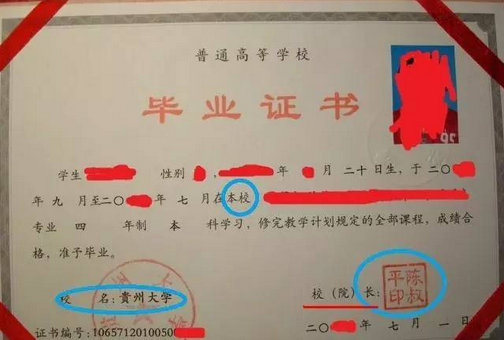 普通高等学校
毕业证书
学生 性别 , 年 月二十日生，于二〇
年九月至二〇 年七月在本校
专业 四 年制 本 科学习，修完教学计划规定的全部课程，成绩合
格，准予毕业。
校 名：贵州大学
校（院）长：
陈叔平印
证书编号：1065712010050
二〇 年七月一日